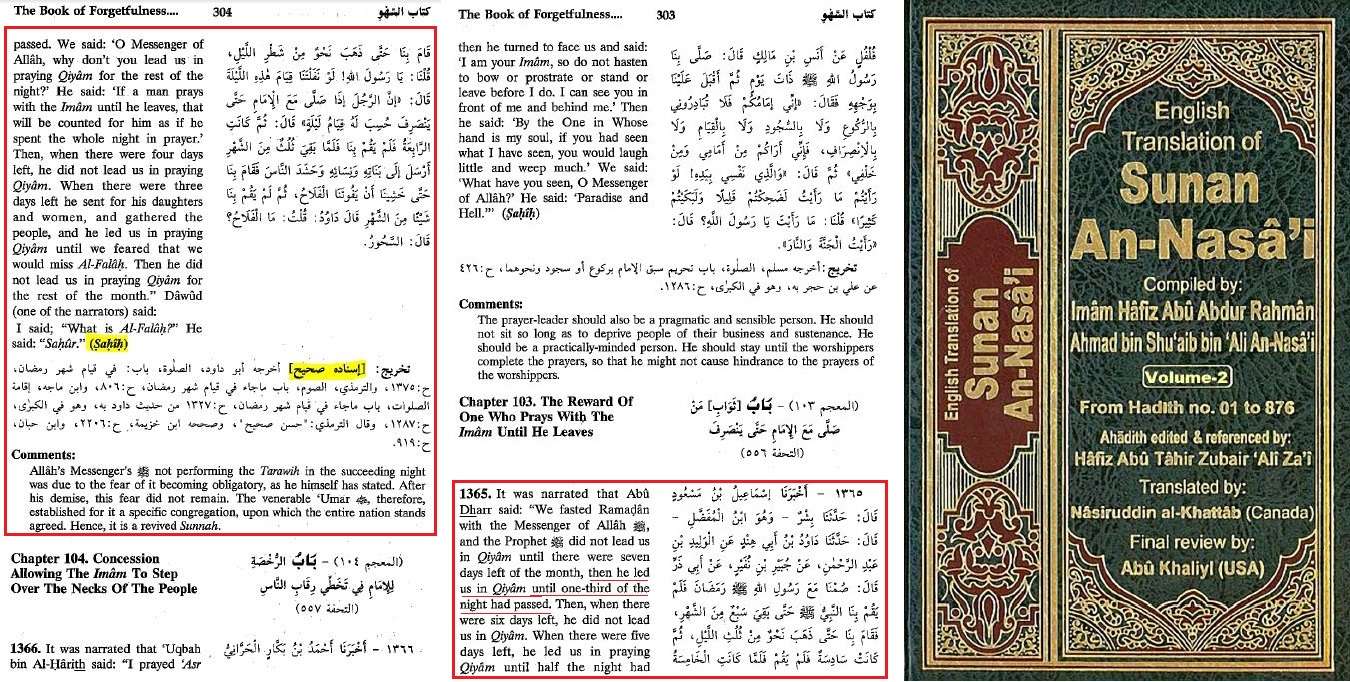 The Book of Forgetfulness.... 304 كتاب السَّهْوِ
passed. We said: 'O Messenger of
Allâh, why don't you lead us in
praying Qiyâm for the rest of the
night?' He said: 'If a man prays
with the Imâm until he leaves, that
will be counted for him as if he
spent the whole night in prayer.'
Then, when there were four days
left, he did not lead us in praying
Qiyâm. When there were three
days left he sent for his daughters
and women, and gathered the
people, and he led us in praying
Qiyâm until we feared that we
would miss Al-Falâḥ. Then he did
not lead us in praying Qiyâm for
the rest of the month." Dâwûd
(one of the narrators) said:
I said; "What is Al-Falâḥ?" He
said: "Saḥûr." (Ṣaḥîḥ)
قَامَ بِنَا حَتَّى ذَهَبَ نَحْوٌ مِنْ شَطْرِ اللَّيْلِ،
قُلْنَا: يَا رَسُولَ اللهِ! لَوْ نَفَّلْتَنَا قِيَامَ هٰذِهِ اللَّيْلَةِ
قَالَ: «إِنَّ الرَّجُلَ إِذَا صَلَّى مَعَ الْإِمَامِ حَتَّى
يَنْصَرِفَ حُسِبَ لَهُ قِيَامُ لَيْلَةٍ» قَالَ: ثُمَّ كَانَتِ
الرَّابِعَةُ فَلَمْ يَقُمْ بِنَا فَلَمَّا بَقِيَ ثُلُثٌ مِنَ الشَّهْرِ
أَرْسَلَ إِلَى بَنَاتِهِ وَنِسَائِهِ وَحَشَدَ النَّاسَ فَقَامَ بِنَا
حَتَّى خَشِينَا أَنْ يَفُوتَنَا الْفَلَاحُ، ثُمَّ لَمْ يَقُمْ بِنَا
شَيْئًا مِنَ الشَّهْرِ قَالَ دَاوُدُ: قُلْتُ: مَا الْفَلَاحُ؟
قَالَ: السَّحُورُ.
تخريج: [إسناده صحيح] أخرجه أبو داود، الصلوة، باب: في قيام شهر رمضان،
ح:١٣٧٥، والترمذي، الصوم، باب ماجاء في قيام شهر رمضان، ح:٨٠٦، وابن ماجه، إقامة
الصلوات، باب ماجاء في قيام شهر رمضان، ح:١٣٢٧ من حديث داود به، وهو في الكبرٰى،
ح:١٢٨٧، وقال الترمذي:"حسن صحيح"، وصححه ابن خزيمة، ح:٢٢٠٦، وابن حبان،
ح:٩١٩.
Comments:
Allâh's Messenger's ﷺ not performing the Tarawih in the succeeding night
was due to the fear of it becoming obligatory, as he himself has stated. After
his demise, this fear did not remain. The venerable 'Umar, therefore,
established for it a specific congregation, upon which the entire nation stands
agreed. Hence, it is a revived Sunnah.
Chapter 104. Concession
Allowing The Imâm To Step
Over The Necks Of The People
(المعجم ١٠٤) - بَابُ الرُّخْصَةِ
لِلْإِمَامِ فِي تَخَطِّي رِقَابِ النَّاسِ
(التحفة ٥٥٧)
1366. It was narrated that 'Uqbah
bin Al-Ḥârith said: "I prayed 'Asr
١٣٦٦ - أَخْبَرَنَا أَحْمَدُ بْنُ بَكَّارٍ الْحَرَّانِيُّ
The Book of Forgetfulness.... 303 كتاب السَّهْوِ
then he turned to face us and said:
'I am your Imâm, so do not hasten
to bow or prostrate or stand or
leave before I do. I can see you in
front of me and behind me.' Then
he said: 'By the One in Whose
hand is my soul, if you had seen
what I have seen, you would laugh
little and weep much.' We said:
'What have you seen, O Messenger
of Allâh?' He said: 'Paradise and
Hell.'" (Ṣaḥîḥ)
فُلْفُلٍ عَنْ أَنَسِ بْنِ مَالِكٍ قَالَ: صَلَّى بِنَا
رَسُولُ اللهِ ﷺ ذَاتَ يَوْمٍ ثُمَّ أَقْبَلَ عَلَيْنَا
بِوَجْهِهِ فَقَالَ: «إِنِّي إِمَامُكُمْ فَلَا تُبَادِرُونِي
بِالرُّكُوعِ وَلَا بِالسُّجُودِ وَلَا بِالْقِيَامِ وَلَا
بِالْانْصِرَافِ، فَإِنِّي أَرَاكُمْ مِنْ أَمَامِي وَمِنْ
خَلْفِي» ثُمَّ قَالَ: «وَالَّذِي نَفْسِي بِيَدِهِ! لَوْ
رَأَيْتُمْ مَا رَأَيْتُ لَضَحِكْتُمْ قَلِيلًا وَلَبَكَيْتُمْ
كَثِيرًا» قُلْنَا: مَا رَأَيْتَ يَا رَسُولَ اللهِ؟ قَالَ:
«رَأَيْتُ الْجَنَّةَ وَالنَّارَ».
تخريج: أخرجه مسلم، الصلوة، باب تحريم سبق الإمام بركوع أو سجود ونحوهما، ح:٤٢٦
عن علي بن حجر به، وهو في الكبرٰى، ح:١٢٨٦.
Comments:
The prayer-leader should also be a pragmatic and sensible person. He should
not sit so long as to deprive people of their business and sustenance. He
should be a practically-minded person. He should stay until the worshippers
complete the prayers, so that he might not cause hindrance to the prayers of
the worshippers.
Chapter 103. The Reward Of
One Who Prays With The
Imâm Until He Leaves
(المعجم ١٠٣) - بَابُ [ثَوَابِ] مَنْ
صَلَّى مَعَ الْإِمَامِ حَتَّى يَنْصَرِفَ
(التحفة ٥٥٦)
1365. It was narrated that Abû
Dharr said: "We fasted Ramaḍân
with the Messenger of Allâh ﷺ,
and the Prophet ﷺ did not lead us
in Qiyâm until there were seven
days left of the month, then he led
us in Qiyâm until one-third of the
night had passed. Then, when there
were six days left, he did not lead
us in Qiyâm. When there were five
days left, he led us in praying
Qiyâm until half the night had
١٣٦٥ - أَخْبَرَنَا إِسْمَاعِيلُ بْنُ مَسْعُودٍ
قَالَ: حَدَّثَنَا بِشْرٌ - وَهُوَ ابْنُ الْمُفَضَّلِ -
قَالَ: حَدَّثَنَا دَاوُدُ بْنُ أَبِي هِنْدٍ عَنِ الْوَلِيدِ بْنِ
عَبْدِ الرَّحْمٰنِ، عَنْ جُبَيْرِ بْنِ نُفَيْرٍ، عَنْ أَبِي ذَرٍّ
قَالَ: صُمْنَا مَعَ رَسُولِ اللهِ ﷺ رَمَضَانَ فَلَمْ
يَقُمْ بِنَا النَّبِيُّ ﷺ حَتَّى بَقِيَ سَبْعٌ مِنَ الشَّهْرِ،
فَقَامَ بِنَا حَتَّى ذَهَبَ نَحْوٌ مِنْ ثُلُثِ اللَّيْلِ، ثُمَّ
كَانَتْ سَادِسَةٌ فَلَمْ يَقُمْ فَلَمَّا كَانَتِ الْخَامِسَةُ
English Translation of
Sunan
An-Nasâ'i
English
Translation of
Sunan
An-Nasâ'i
Compiled by:
Imâm Hâfiz Abû Abdur Rahmân
Ahmad bin Shu'aib bin 'Ali An-Nasâ'i
Volume-2
From Hadith no. 01 to 876
Ahâdith edited & referenced by:
Hâfiz Abû Tâhir Zubair 'Ali Za'i
Translated by:
Nâsiruddin al-Khattâb (Canada)
Final review by:
Abû Khaliyl (USA)